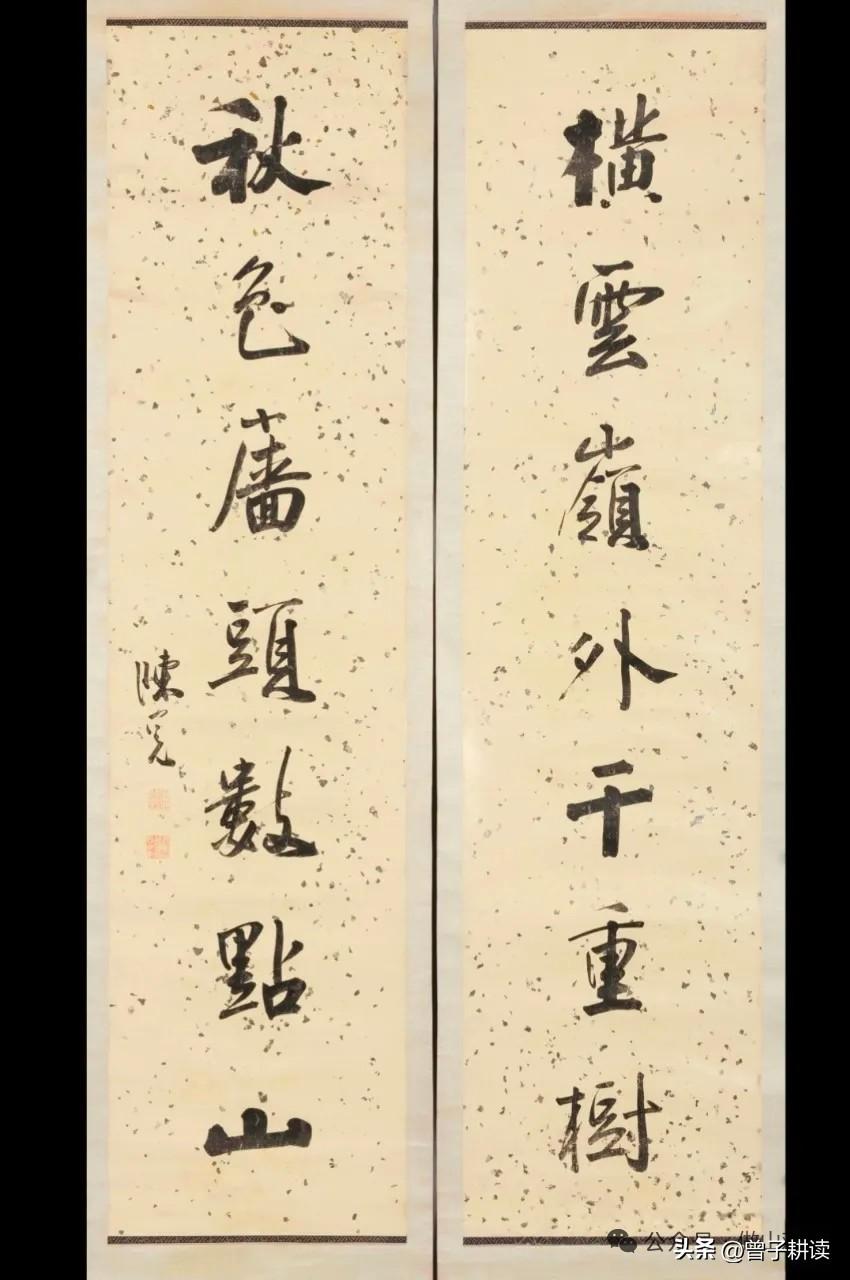 橫雲嶺外千重樹
秋色廧頭數點山
陳冕
公众号
头条 @曾子耕读